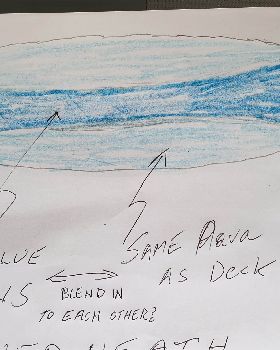 LUE
SAME
AS DECK
NS
BLEND IN
TO EACH OTHER?
NEATH